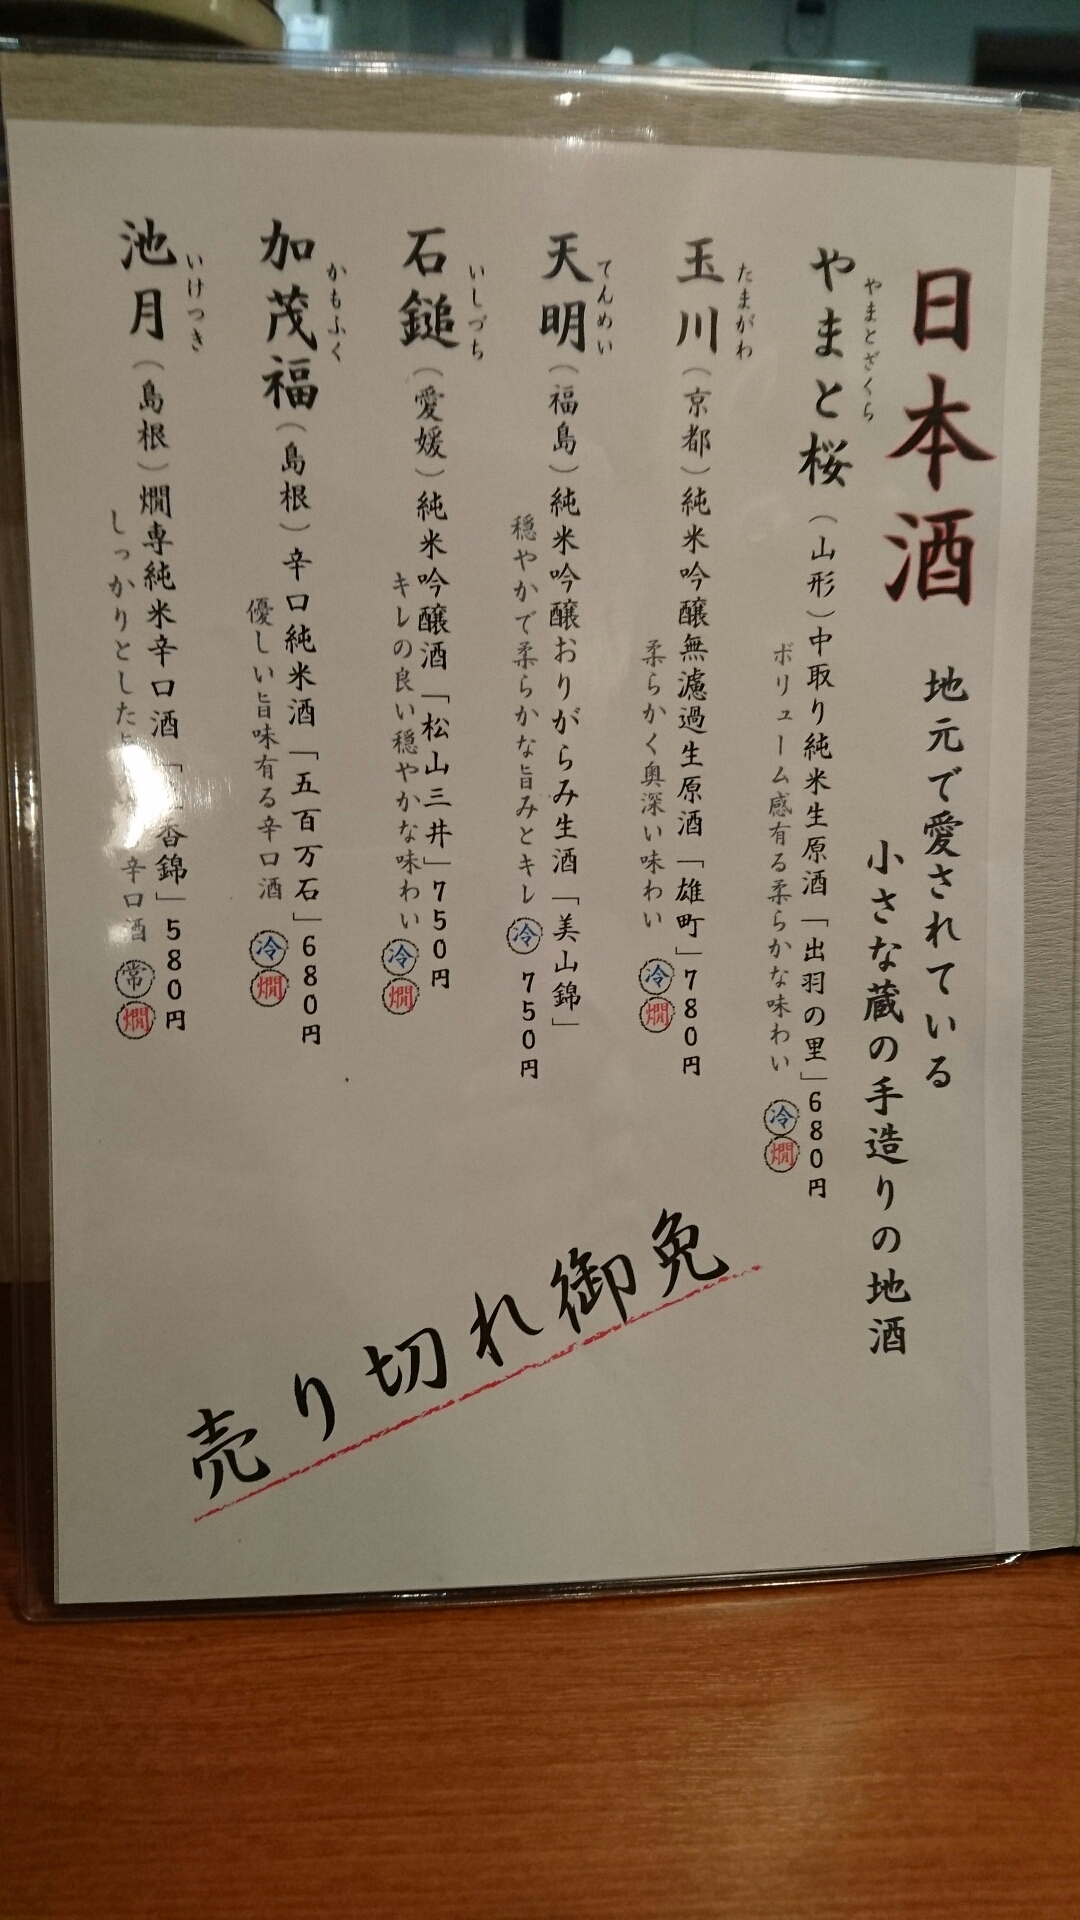 日本酒
地元で愛されている
小さな蔵の手造りの地酒
やまとざくら
やまと桜（山形）中取り純米生原酒「出羽の里」680円
ボリューム感有る柔らかな味わい 冷 燗
たまがわ
玉川（京都）純米吟醸無濾過生原酒「雄町」780円
柔らかく奥深い味わい 冷 燗
てんめい
天明（福島）純米吟醸おりがらみ生酒「美山錦」
穏やかで柔らかな旨みとキレ 冷 750円
いしづち
石鎚（愛媛）純米吟醸酒「松山三井」750円
キレの良い穏やかな味わい 冷 燗
かもふく
加茂福（島根）辛口純米酒「五百万石」680円
優しい旨味有る辛口酒 冷 燗
いけつき
池月（島根）燗専純米辛口酒「香錦」580円
しっかりとした 辛口酒 常 燗
売り切れ御免